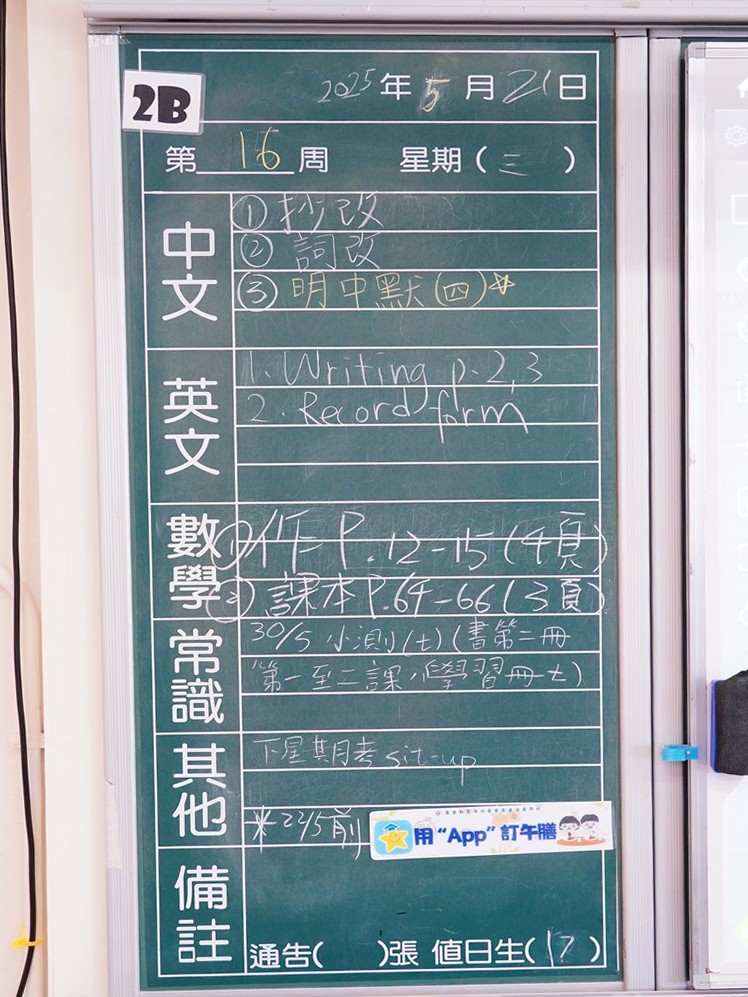 2B
2025年5月21日
第16周 星期(三)
中文
①抄改
②詞改
③明中默(四)☆
英文
1. Writing p.2,3
2. Record form
數學
①作 P.12-15(4頁)
②課本P.64-66(3頁)
常識
30/5 小測(七)(書第二冊
第一至二課,學習冊七)
其他
下星期考 sit-up
*22/5前
用“App”訂午膳
備註
通告( )張 值日生(17)